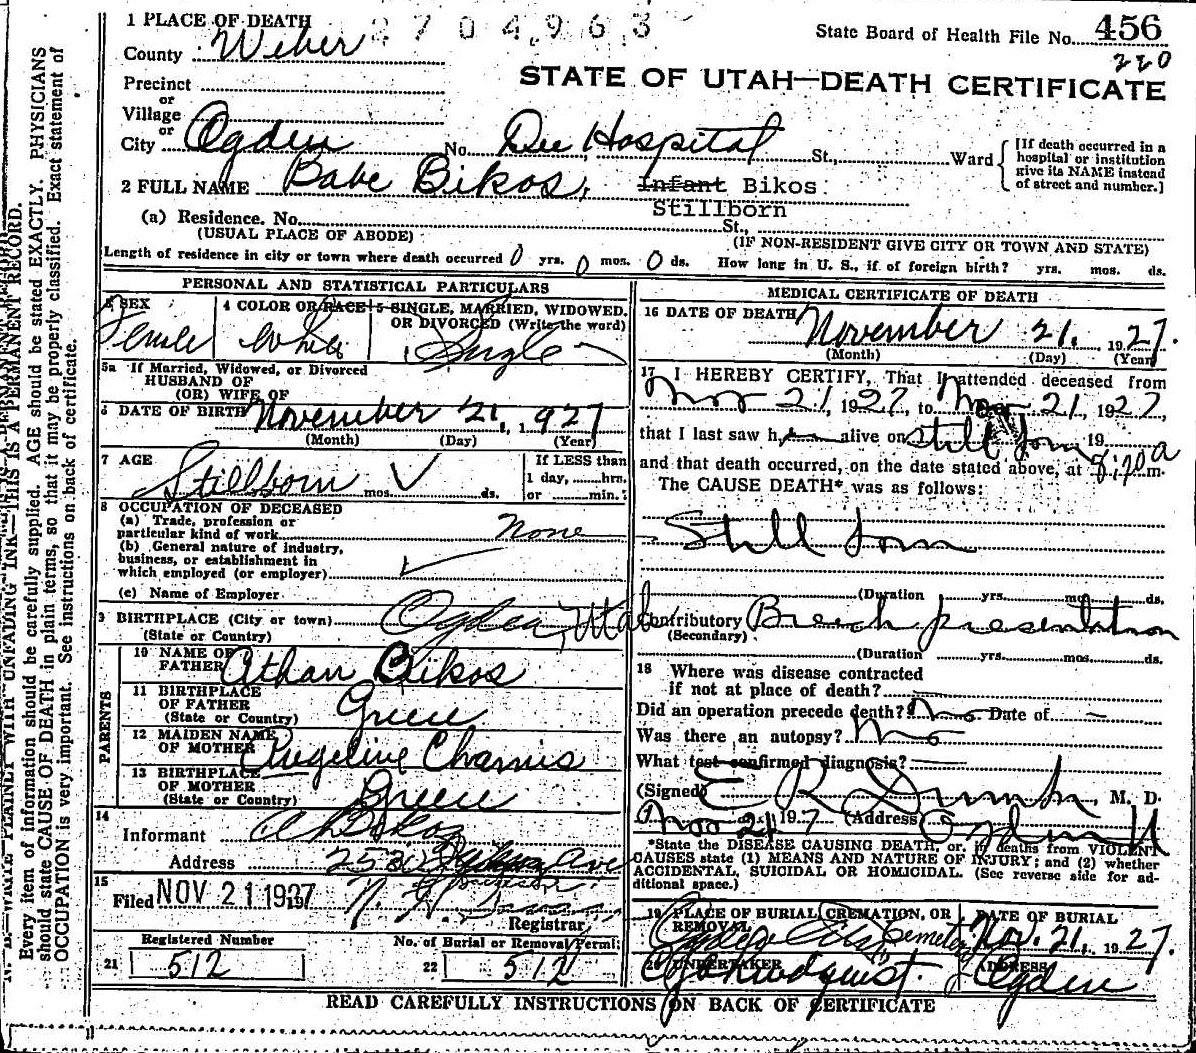 1 PLACE OF DEATH 2704963
State Board of Health File No. 456
County Weber
220
STATE OF UTAH—DEATH CERTIFICATE
Precinct
or
Village
or
City Ogden No. Dee Hospital St., Ward
[If death occurred in a
hospital or institution
give its NAME instead
of street and number.]
2 FULL NAME Babe Bikos, Infant Bikos
Stillborn
(a) Residence. No. St.,
(USUAL PLACE OF ABODE) (IF NON-RESIDENT GIVE CITY OR TOWN AND STATE)
Length of residence in city or town where death occurred 0 yrs. 0 mos. 0 ds. How long in U. S., if of foreign birth? yrs. mos. ds.
PERSONAL AND STATISTICAL PARTICULARS
SEX 4 COLOR OR RACE 5 SINGLE, MARRIED, WIDOWED,
OR DIVORCED (Write the word)
Female White Single
5a If Married, Widowed, or Divorced
HUSBAND OF
(OR) WIFE OF
6 DATE OF BIRTH November 21, 1927
(Month) (Day) (Year)
7 AGE If LESS than
1 day, hrs.
or min.
Stillborn mos. ds.
8 OCCUPATION OF DECEASED
(a) Trade, profession or
particular kind of work None
(b) General nature of industry,
business, or establishment in
which employed (or employer)
(c) Name of Employer
9 BIRTHPLACE (City or town) Ogden, Utah
(State or Country)
PARENTS
10 NAME OF
FATHER Athan Bikos
11 BIRTHPLACE
OF FATHER
(State or Country) Greece
12 MAIDEN NAME
OF MOTHER Angeline Chamis
13 BIRTHPLACE
OF MOTHER
(State or Country) Greece
14
Informant
Address Ave
15
Filed NOV 21 1927
Registrar
Registered Number No. of Burial or Removal Permit
21 512 22 512
MEDICAL CERTIFICATE OF DEATH
16 DATE OF DEATH November 21, 1927.
(Month) (Day) (Year)
17 I HEREBY CERTIFY, That I attended deceased from
Nov 21, 1927, to Nov 21, 1927,
that I last saw h alive on Still born 19
and that death occurred, on the date stated above, at m.
The CAUSE DEATH* was as follows:
Still born
(Duration yrs. mos. ds.
Contributory Breech presentation
(Secondary)
(Duration yrs. mos. ds.
18 Where was disease contracted
if not at place of death?
Did an operation precede death? No Date of —
Was there an autopsy? No
What test confirmed diagnosis?
(Signed) E R Dumke, M. D.
Nov 21 1927 (Address) Ogden U
*State the DISEASE CAUSING DEATH, or, in deaths from VIOLENT
CAUSES state (1) MEANS AND NATURE OF INJURY; and (2) whether
ACCIDENTAL, SUICIDAL OR HOMICIDAL. (See reverse side for ad-
ditional space.)
19 PLACE OF BURIAL, CREMATION, OR
REMOVAL
DATE OF BURIAL
Ogden City Cemetery Nov. 21, 1927.
20 UNDERTAKER ADDRESS
Lindquist. Ogden
READ CAREFULLY INSTRUCTIONS ON BACK OF CERTIFICATE
N. B.—WRITE PLAINLY WITH UNFADING INK—THIS IS A PERMANENT RECORD.
Every item of information should be carefully supplied. AGE should be stated EXACTLY. PHYSICIANS
should state CAUSE OF DEATH in plain terms, so that it may be properly classified. Exact statement of
OCCUPATION is very important. See instructions on back of certificate.